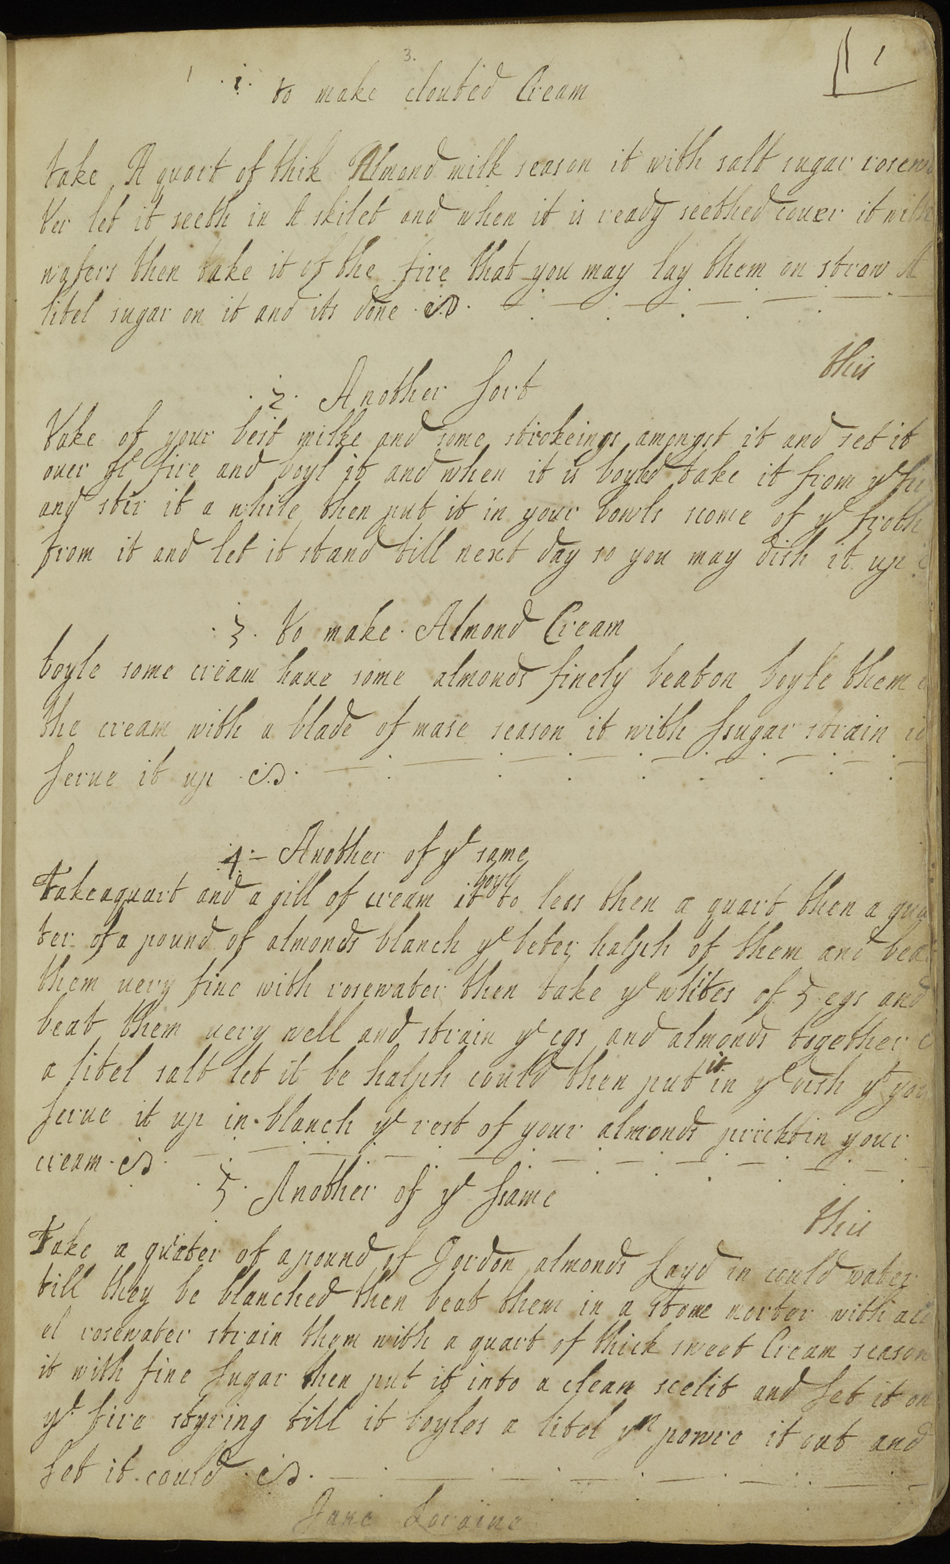 3.
1 .1. to make clouted Cream
1 1
take A quart of thik Almond milk season it with salt sugar rosewa
ter let it seeth in A skilet and when it is ready seethed couer it with
wafers then take it of the fire that you may lay them on strow A
litel sugar on it and its done
this
.2. Another sort
Take of your best milke and some strokeings amongst it and set it
ouer ye fire and boyl it and when it is boyled take it from ye fir
and stir it a while then put it in your bowls scome of ye froth
from it and let it stand till next day so you may dish it up
.3. to make Almond Cream
boyle some cream haue some almonds finely beaton boyle them
the cream with a blade of mase season it with ssugar strain it
serue it up
4 Another of ye same
boyl
Take a quart and a gill of cream it to less then a quart then a qua
ter of a pound of almonds blanch ye beter halph of them and beat
them uery fine with rosewater then take ye whites of 5 egs and
beat them uery well and strain ye egs and almonds together
it
a litel salt let it be halph could then put in ye dish yt you
serue it up in blanch ye rest of your almonds prickt in your
cream
5. Another of ye ssame
this
Take a quater of a pound of Jordon almonds layd in could water
till they be blanched then beat them in a stone morter with a lit
el rosewater strain them with a quart of thick sweet Cream season
it with fine sugar then put it into a clean scelit and set it on
ye fire styring till it boyles a litel yn powre it out and
set it could
Jane Loraine